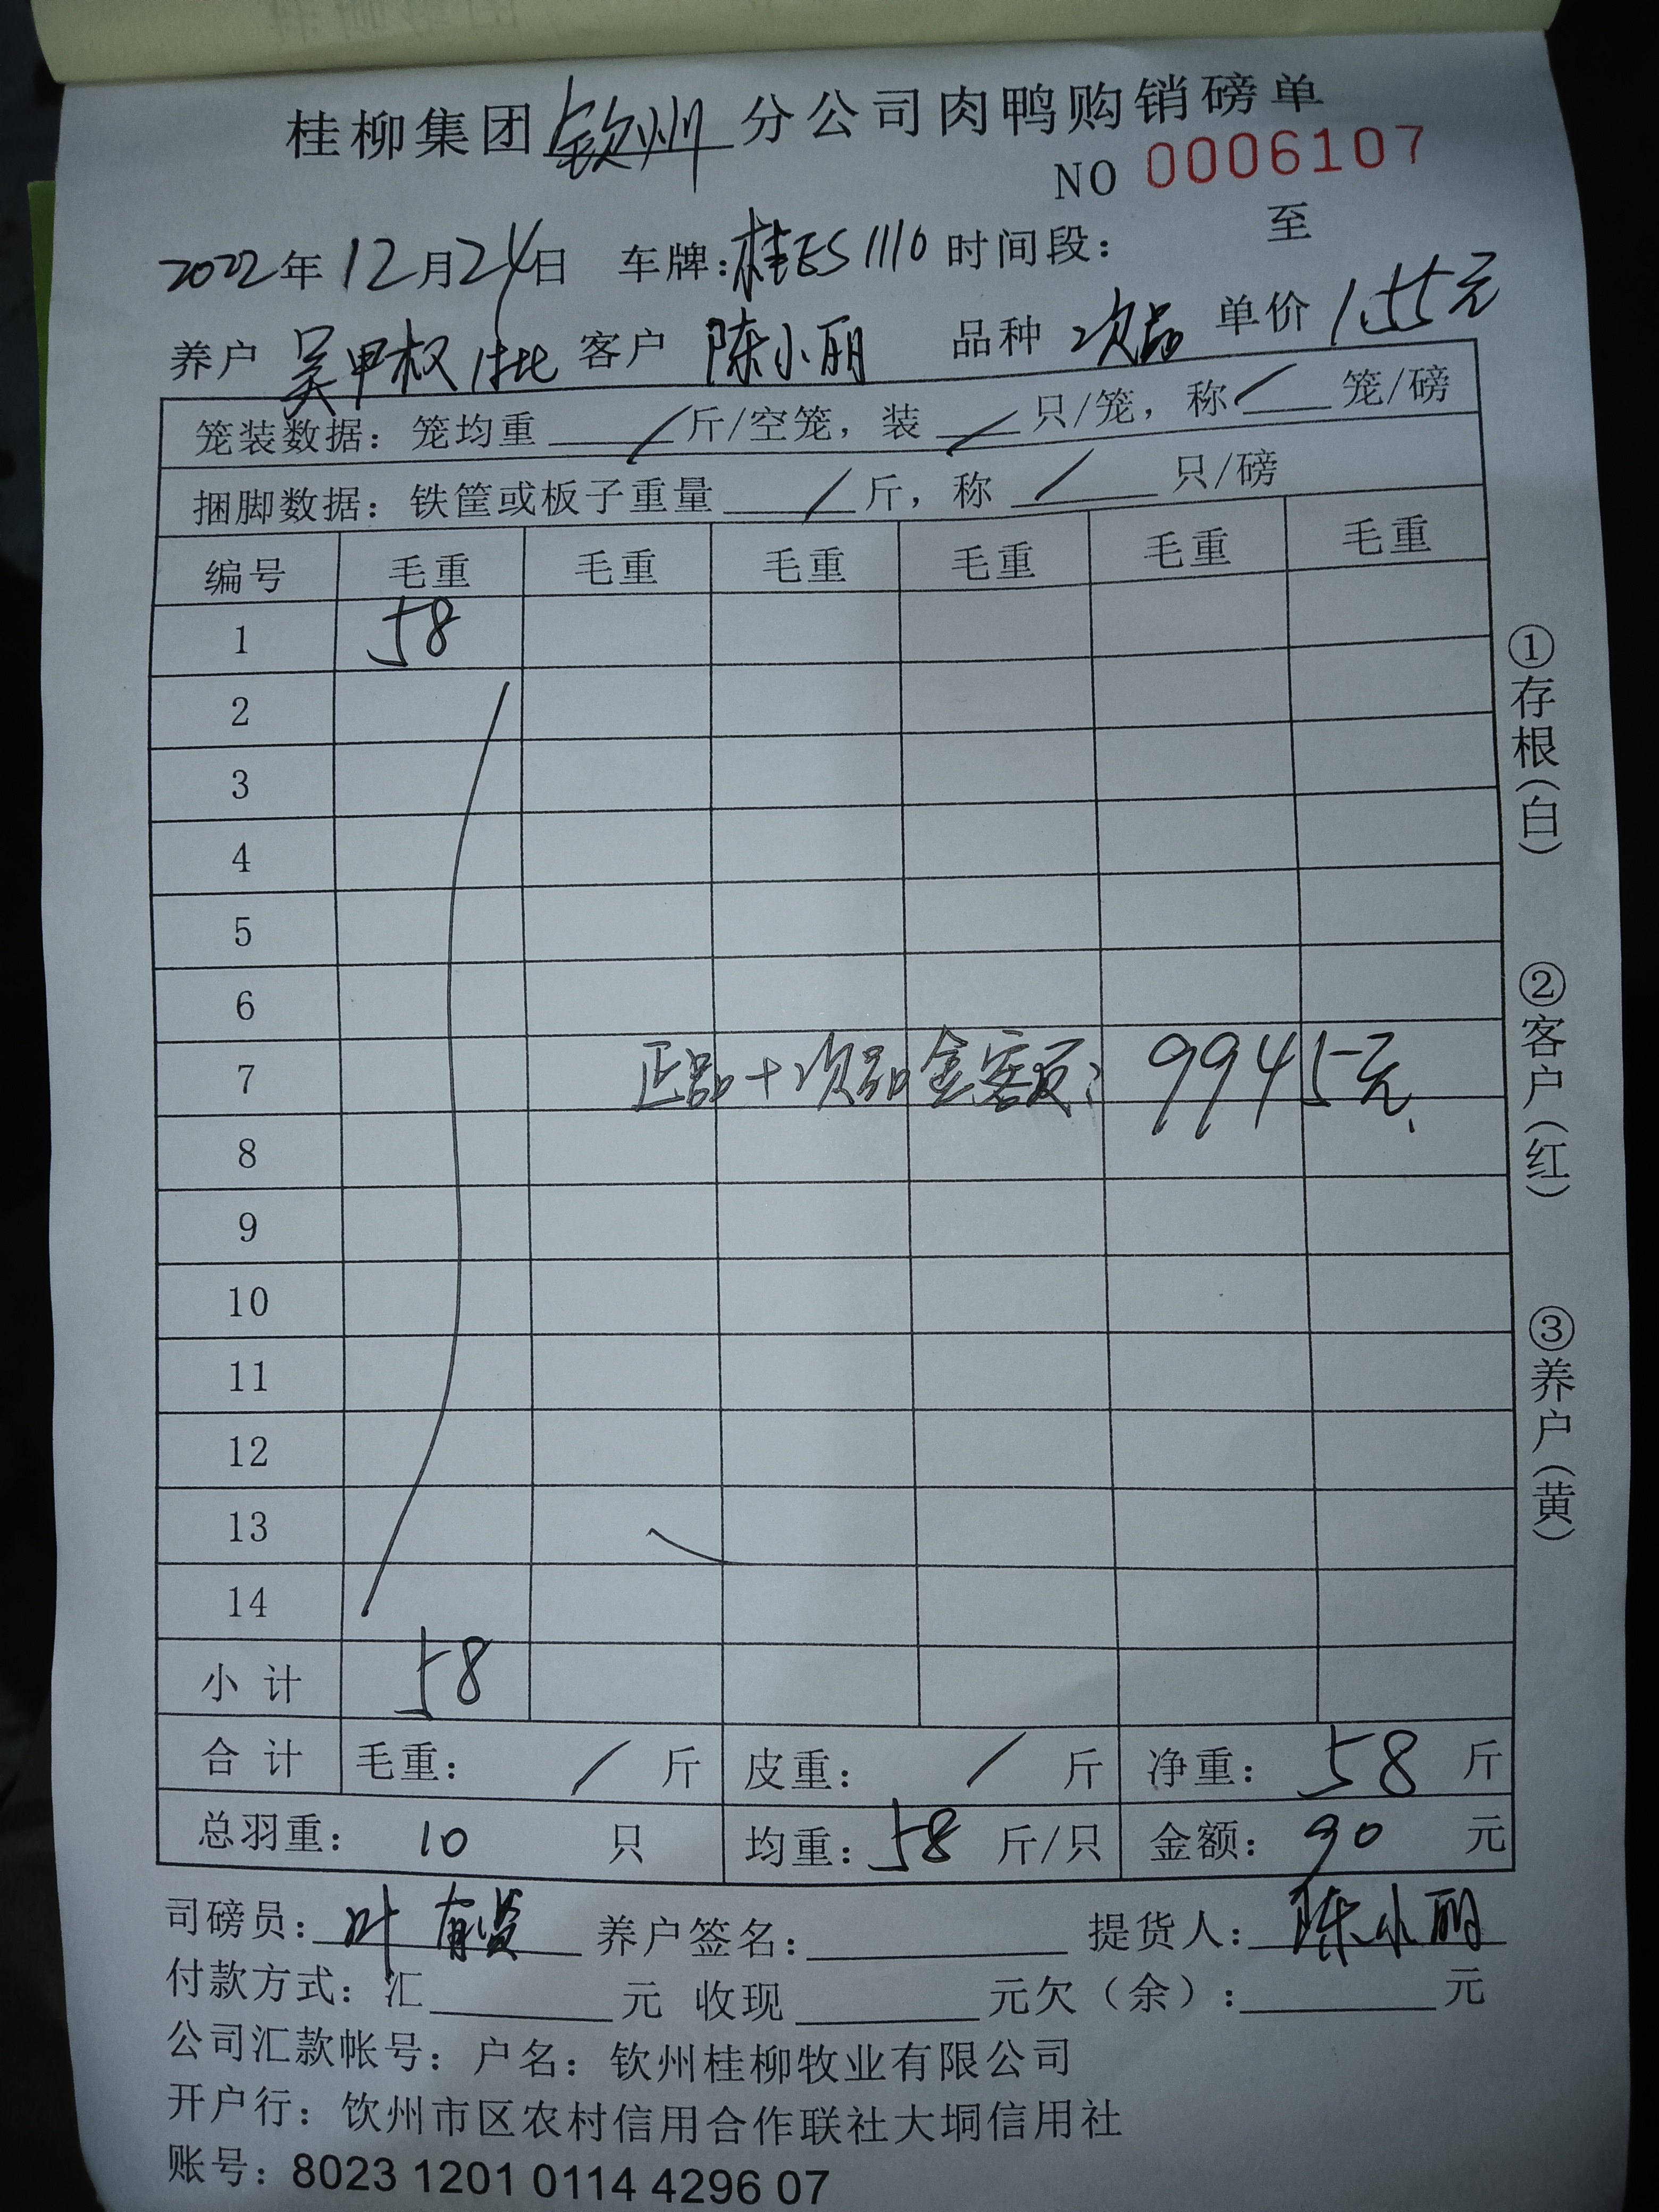 桂柳集团钦州分公司肉鸭购销磅单
NO 0006107
2022年12月24日 车牌:桂ES1110 时间段: 至
养户 吴甲权 1批 客户 陈小丽 品种 次品 单价 1.55元
笼装数据: 笼均重 / 斤/空笼, 装 / 只/笼, 称 / 笼/磅
捆脚数据: 铁筐或板子重量 / 斤, 称 / 只/磅
编号 毛重 毛重 毛重 毛重 毛重 毛重
1 58
2
3
4
5
6
7 正品+次品金额: 9945元
8
9
10
11
12
13
14
小 计 58
合 计 毛重: / 斤 皮重: / 斤 净重: 58 斤
总羽重: 10 只 均重: 58 斤/只 金额: 90 元
司磅员: 叶有贤 养户签名: 提货人: 陈小丽
付款方式: 汇 元 收现 元欠(余): 元
公司汇款帐号: 户名: 钦州桂柳牧业有限公司
开户行: 钦州市区农村信用合作联社大垌信用社
账号: 8023 1201 0114 4296 07
①存根(白)
②客户(红)
③养户(黄)